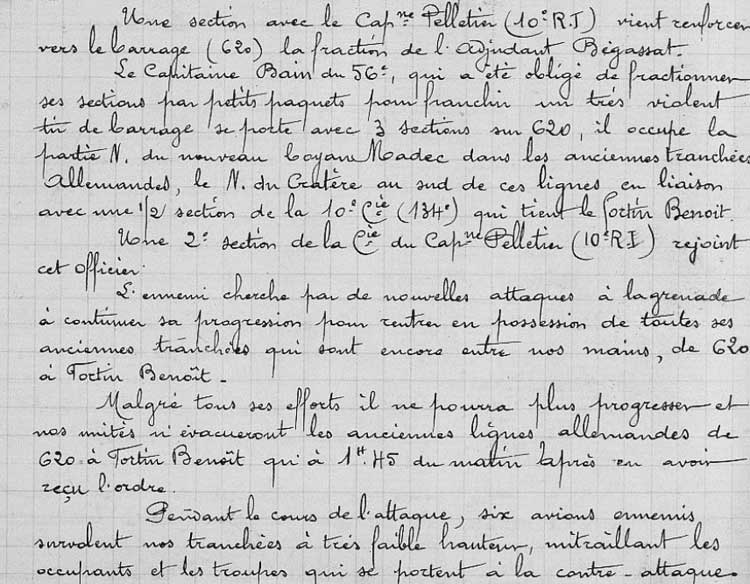 Une section avec le Capne Pelletier (10e R.I) vient renforcer
vers le barrage (620) la fraction de l'Adjudant Bégassat.
Le Capitaine Bain du 56e, qui a été obligé de fractionner
ses sections par petits paquets pour franchir un très violent
tir de barrage se porte avec 3 sections sur 620, il occupe la
partie N. du nouveau boyau Madec dans les anciennes tranchées
Allemandes, le N. du Cratère au sud de ces lignes en liaison
avec une 1/2 section de la 10e Cie (134e) qui tient le fortin Benoit.
Une 2e section de la Cie du Capne Pelletier (10e R.I) rejoint
cet officier.
L'ennemi cherche par de nouvelles attaques à la grenade
à continuer sa progression pour rentrer en possession de toutes ses
anciennes tranchées qui sont encore entre nos mains, de 620
à Fortin Benoît.
Malgré tous ses efforts il ne pourra plus progresser et
nos unités n'évacueront les anciennes lignes allemandes de
620 à Fortin Benoît qu'à 1H45 du matin après en avoir
reçu l'ordre.
Pendant le cours de l'attaque, six avions ennemis
survolent nos tranchées à très faible hauteur, mitraillant les
occupants et les troupes qui se portent à la contre-attaque.